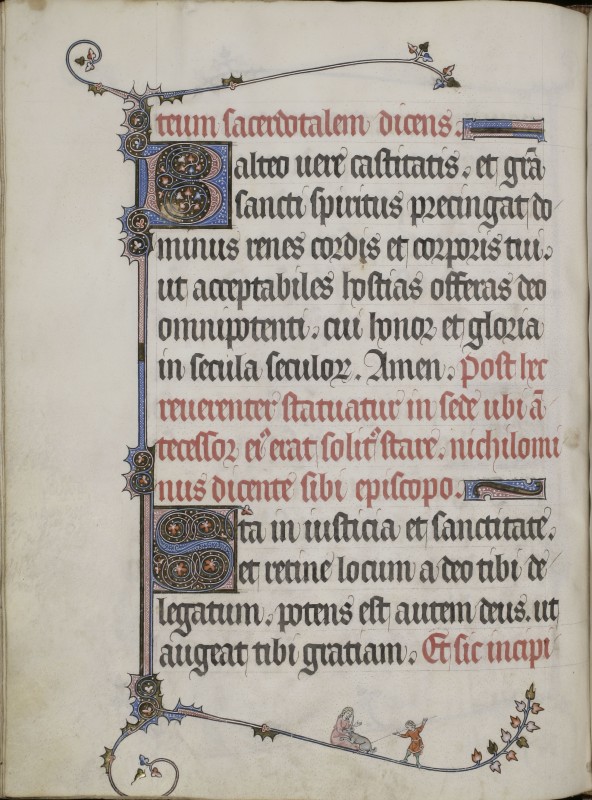 teum sacerdotalem dicens.
Balteo uere castitatis. et grā
sancti spiritus precingat do
minus renes cordis et corporis tui.
ut acceptabiles hostias offeras deo
omnipotenti. cui honor et gloria
in secula seculoꝝ. Amen. Post hec
reuerenter statuatur in sede ubi ā
tecessor eiꝰ erat solitꝰ stare. nichilomi
nus dicente sibi episcopo.
Sta in iusticia et sanctitate.
et retine locum a deo tibi de
legatum. potens est autem deus. ut
augeat tibi gratiam. Et sic incipi